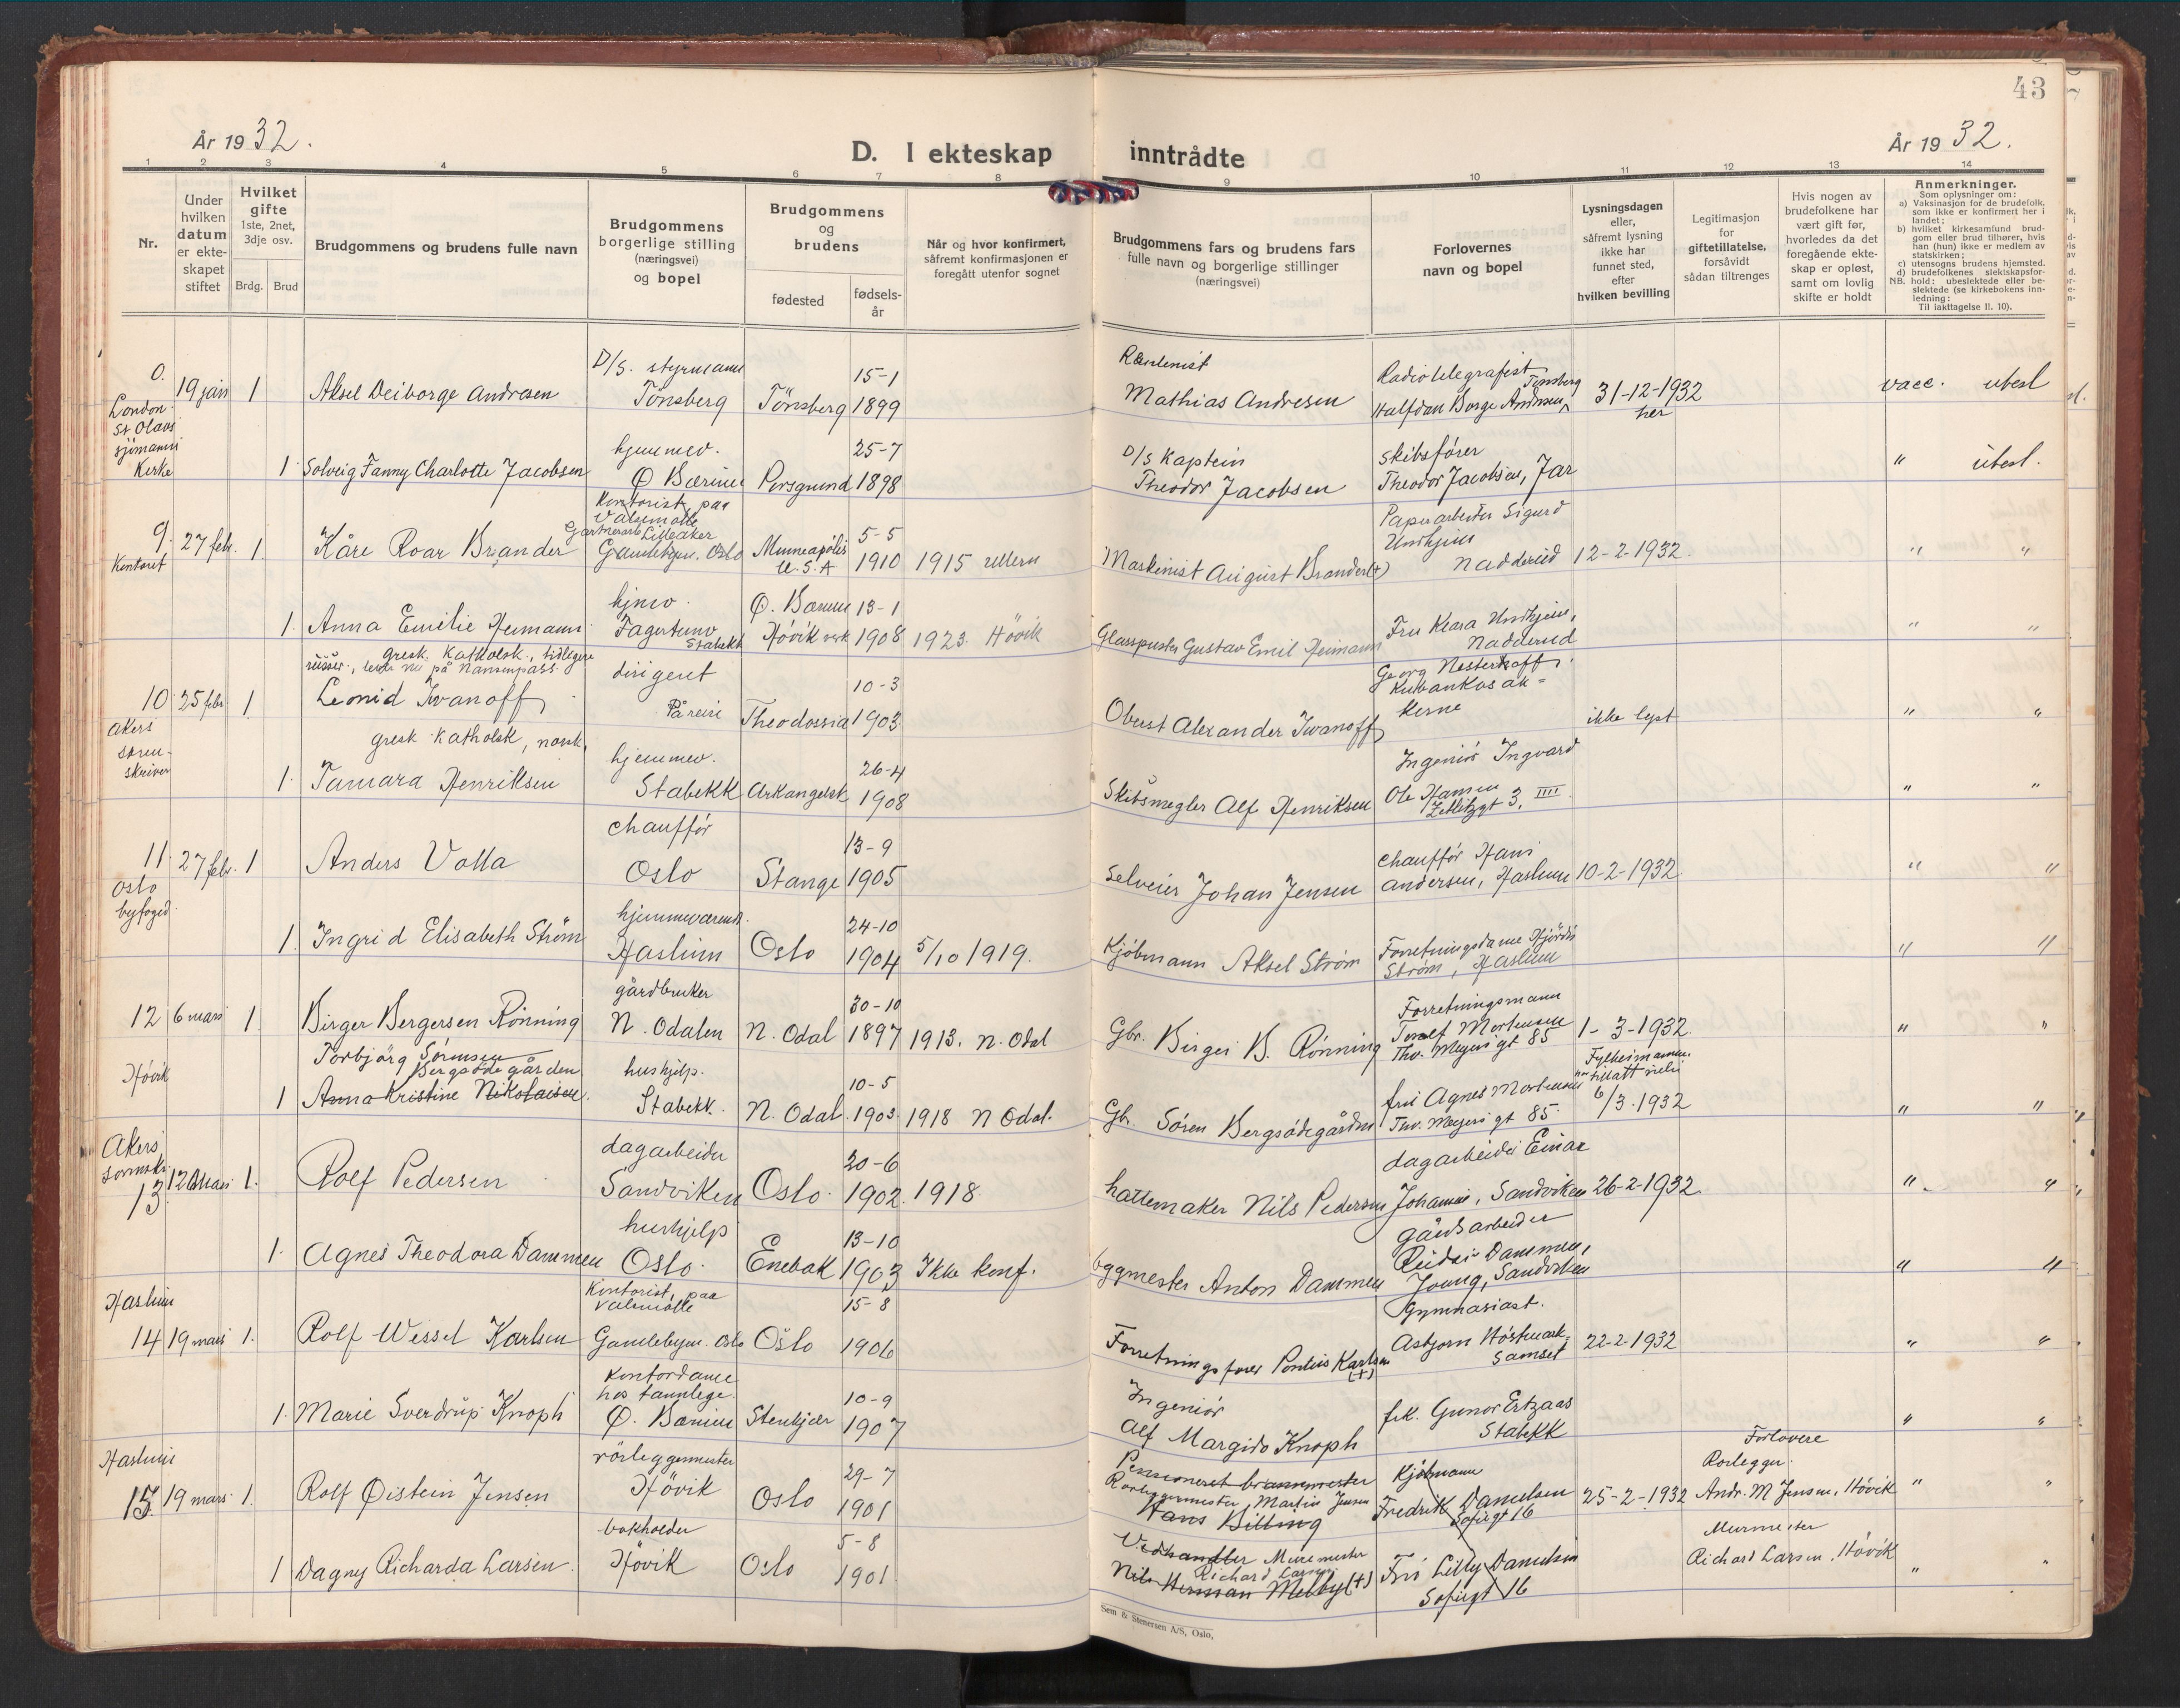 43
År 1932.
D. I ekteskap inntrådte
År 1932.
1 2 3 4 5 6 7 8 9 10 11 12 13 14
Nr.
Under hvilken datum er ekteskapet stiftet
Hvilket gifte
1ste, 2net, 3dje osv.
Brdg. Brud
Brudgommens og brudens fulle navn
Brudgommens borgerlige stilling (næringsvei) og bopel
Brudgommens og brudens
fødested
fødselsår
Når og hvor konfirmert, såfremt konfirmasjonen er foregått utenfor sognet
Brudgommens fars og brudens fars fulle navn og borgerlige stillinger (næringsvei)
Forlovernes navn og bopel
Lysningsdagen eller, såfremt lysning ikke har funnet sted, efter hvilken bevilling
Legitimasjon for giftetillatelse, forsåvidt sådan tiltrenges
Hvis nogen av brudefolkene har vært gift før, hvorledes da det foregående ekteskap er opløst, samt om lovlig skifte er holdt
Anmerkninger.
Som oplysninger om:
a) Vaksinasjon for de brudefolk, som ikke er konfirmert her i landet;
b) hvilket kirkesamfund brudgom eller brud tilhører, hvis han (hun) ikke er medlem av statskirken;
c) utensogns brudens hjemsted.
d) brudefolkenes slektskapsforhold: ubeslektede eller beslektede (se kirkebokens innledning:
NB.
Til iakttagelse II. 10).
0. London St Olavs sjömanns Kirke
19 jan 1 Aksel Deiborge Andresen
D/S. styrmann Tönsberg Tönsberg 15-1 1899
Mathias Andresen
Radiotelegrafist Halfdan Borge Andresen, Tönsberg
31-12-1932 her
vacc. ubesl
1 Solveig Fanny Charlotte Jacobsen
hjemmev. Ø Bærum Porsgrund 25-7 1898
D/S Kaptein Theodor Jacobsen
Skibsfører Theodor Jacobsen, Jar
" ubesl.
9. Kontoret 27 febr. 1 Kåre Roar Brander
Gamlebyen. Oslo Minneapolis U.S.A 5-5 1910 1915 Ullern
Maskinist August Brander (+)
Papirarbeider Sigurd Undhjem Nadderud
12-2-1932.
" "
1. Anna Emilie Heimann
hjmv. Fagertunv Stabekk Ø. Bærum Hövik verk 13-1 1908 1923. Hövik
Glasspuster Gustav Emil Heimann
Fru Klara Undhjem, Nadderud
" "
gresk. Katholsk, tidligere russer, lever nu på Nansenpass.
10 Akers sorenskriver 25 febr. 1 Leonid Iwanoff
dirigent På reise Theodossia 10-3 1903
Oberst Alexander Iwanoff
Georg Nesterkoff Kubankosakkerne
ikke lyst
" "
gresk Katholsk, norsk,
1. Tamara Henriksen
hjemmev. Stabekk Arkangelsk 26-4 1908
Skibsmegler Alf Henriksen
Ingeniör Ingvard Ole Hansen Zetlitzgt 3, IIII
" "
11. Oslo byfoged 27 febr. 1 Anders Volla
chaufför Oslo Stange 13-9 1905
Selveier Johan Jensen
chaufför Hans Andersen, Haslum
10-2-1932
" "
1. Ingrid Elisabeth Ström
hjemmeværend. Haslum Oslo 24-10 1904 5/10 1919.
Kjöbmann Aksel Ström
Forretningsdame Hjördis Ström, Haslum
" "
12 Hövik 6 mars 1 Birger Bergersen Rönning
gårdbruker N. Odalen N. Odal 30-10 1897 1913. N. Odal
Gbr. Birger B. Rönning
Forretningsmann Mortensen Thv. Meyers gt 85
1-3-1932.
" "
Torbjörg Sörensen Bergsödegården
1 Anna Kristine Nikolaisen.
hushjelp. Stabekk. N. Odal. 10-5 1903 1918 N Odal.
Gbr. Sören Bergsödegården
fru Agnes Mortensen Thv. Meyers gt 85.
6/3.1932
" "
Akers sorenskr. 13. 12 mars 1. Rolf Pedersen
dagarbeider Sandviken Oslo. 20-6 1902. 1918.
hattemaker Nils Pedersen
dagarbeider Einar Johansen, Sandviken
26-2-1932.
" "
1. Agnes Theodora Dammen
hushjelp Oslo. Enebak 13-10 1903 Ikke konf.
byggmester Anton Dammen
gårdsarbeider Dammen, Joung, Sandviken
" "
Haslum 14 19 mars 1. Rolf Wessel Karlsen
Kontorist, paa Valsemölle Gamlebyen. Oslo Oslo 15-8 1906
Forretningsfører Pontus Karlsen (+)
Gymnasiast. Asbjorn Höstmark Samset
22-2-1932
" "
1. Marie Sverdrup Knoph
Kontordame hos tannlege. Ø. Bærum Stenkjær 10-9 1907
Ingeniör Alf Margido Knoph
frk. Gunvor Ertzaas Stabekk
" "
Haslum 15. 19 mars 1. Rolf Øistein Jensen
rörleggermester Hövik Oslo 29-7 1901
Pensioneret brannmester
Rorleggermester, Martin Jensen
Hans Billing
Kjöbmann Fredrik Danielsen Sofiegt 16
25-2-1932
Forlovere Rorlegger. Andr. M Jensen, Hövik
" "
1 Dagny Richarda Larsen
bokholder Hövik Oslo 5-8 1901
Vedhandler Murmester Richard Larsen
Nils Herman Melby (+)
Fru Lilly Danielsen Sofiegt 16
Murmester Richard Larsen, Hövik
" "
Sem & Stenersen A/S, Oslo,